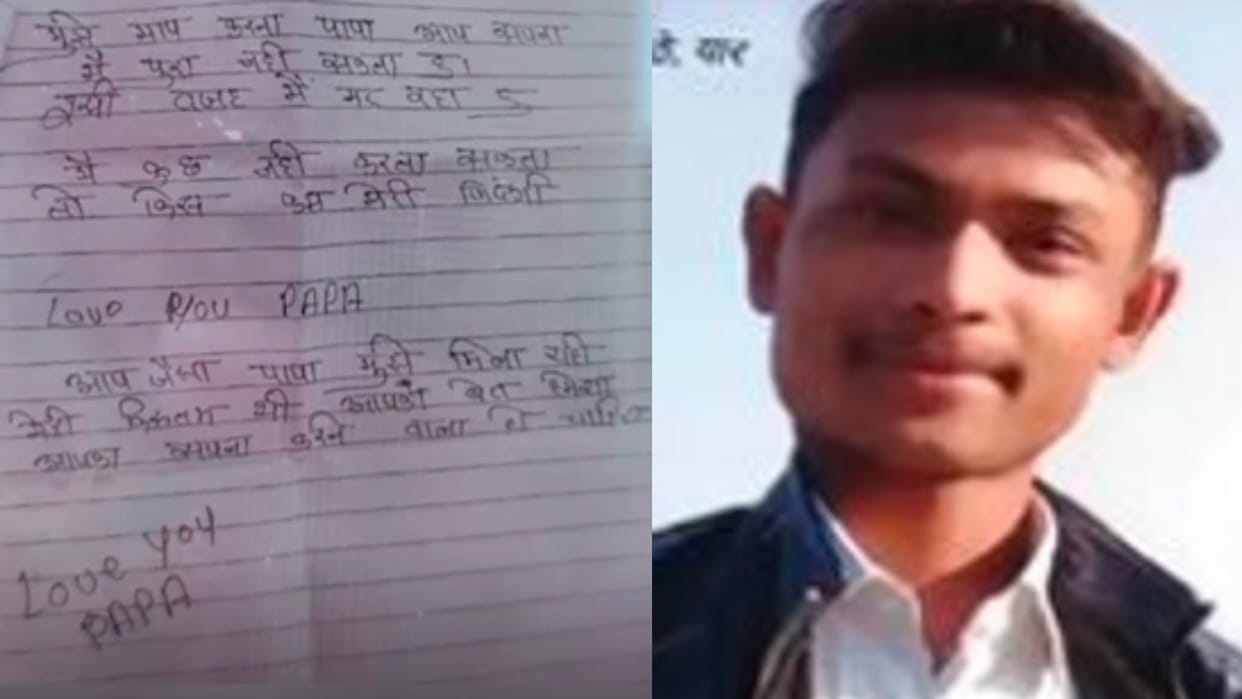 मुझे माप करना पापा आप सपना
मै पुरा नही सकता हु।
इसी वजह में मर रहा हु
मै कुछ नही करता सकता
तो किस काम मेरी जिदंगी
Love YOU PAPA
आप जैसा पापा मुझे मिला
मेरी किस्तम थी आपको
आपका सपना करने वाला
Love you
PAPA
के. यार